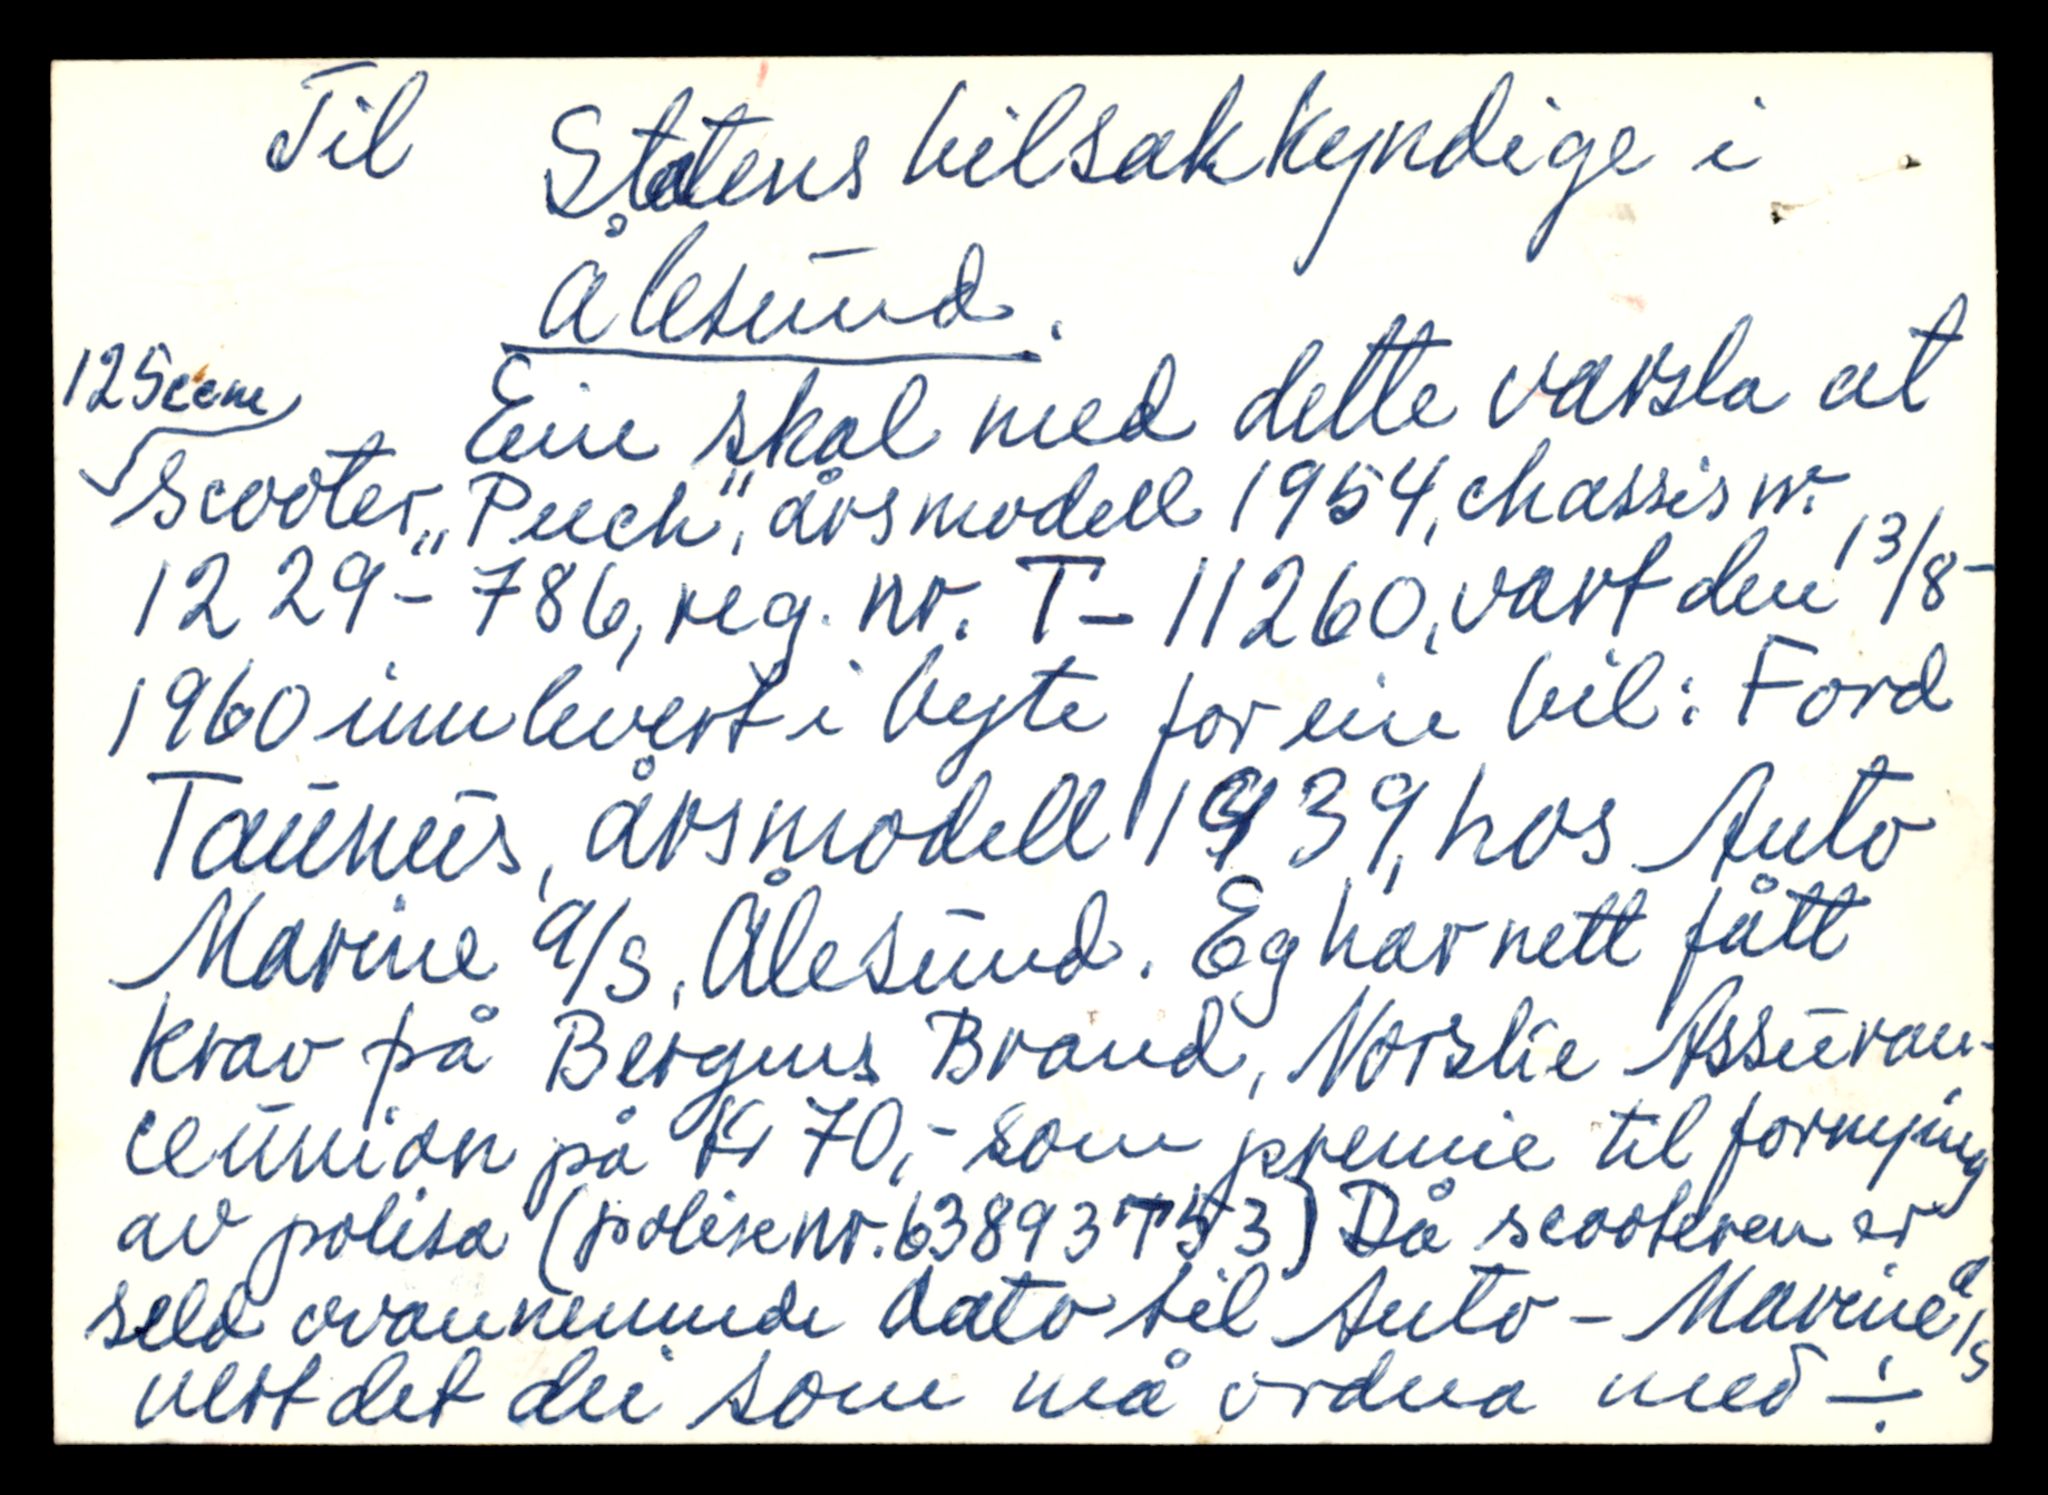 Til Statens bilsakkyndige i
Ålesund.
125 ccm
Ein skal med dette varsla at
scooter „Puch“, årsmodell 1954, chassis nr.
1229-786, reg. nr. T-11260, vart den 13/8-
1960 innlevert i byte for ein bil: Ford
Taunus, årsmodell 1939, hos Auto
Marine a/s, Ålesund. Eg har nett fått
krav på Bergens Brand, Norske Assuran-
ceunion på Kr 70,- som premie til fornying
av polisa (polise nr. 63893753) Då scooteren er
seld ovannemnde dato til Auto - Marine a/s
vert det dei som må ordna med ÷